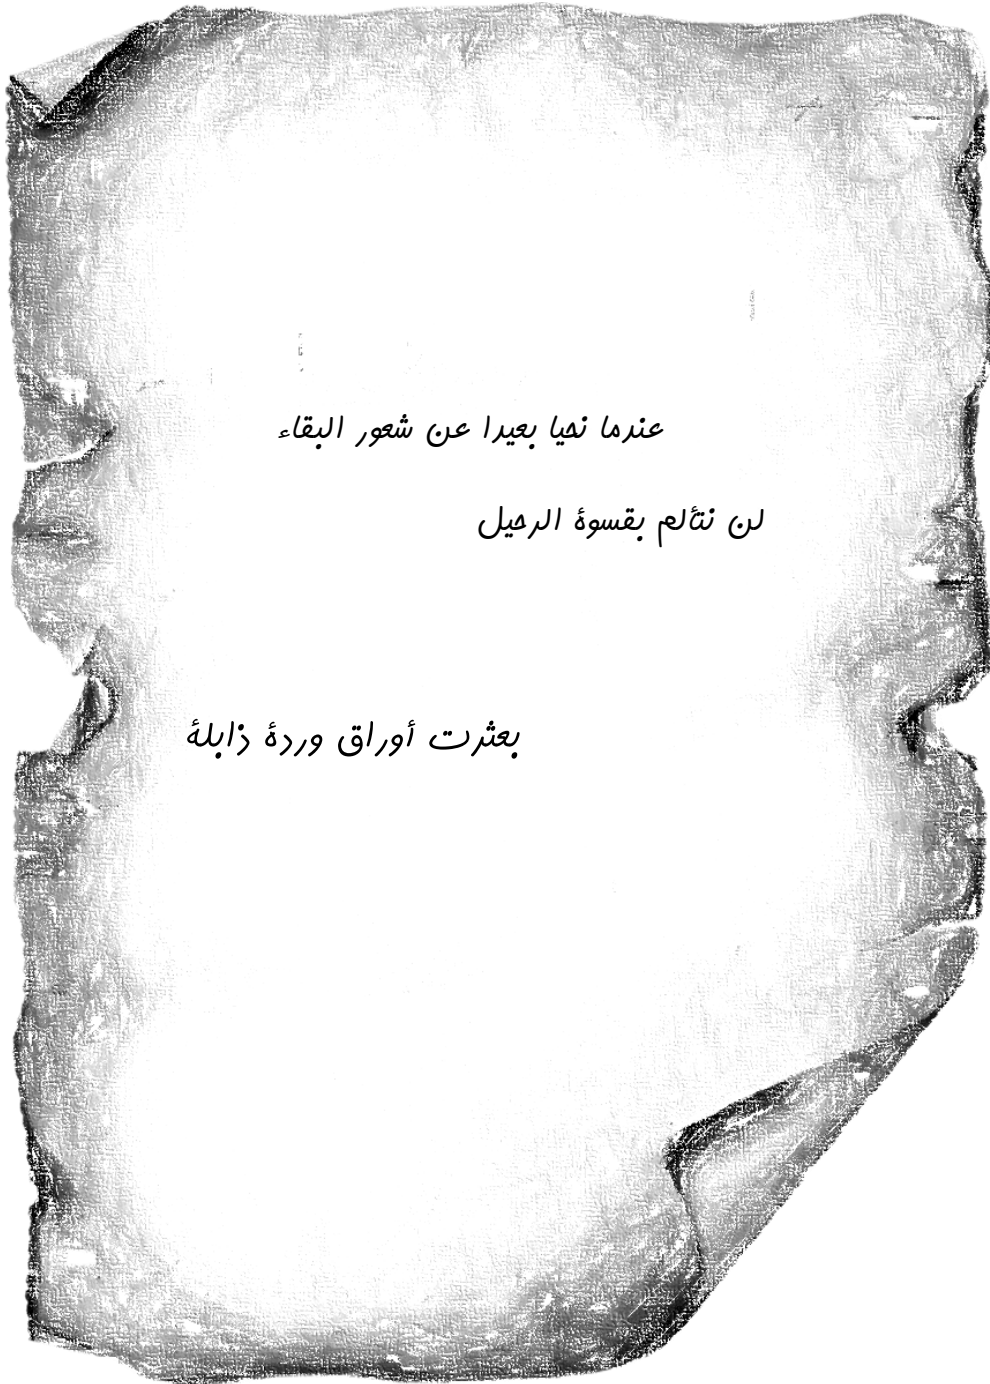 عندما نحيا بعيدا عن شعور البقاء
لن نتألم بقسوة الرحيل
بعثرت أوراق وردة ذابلة